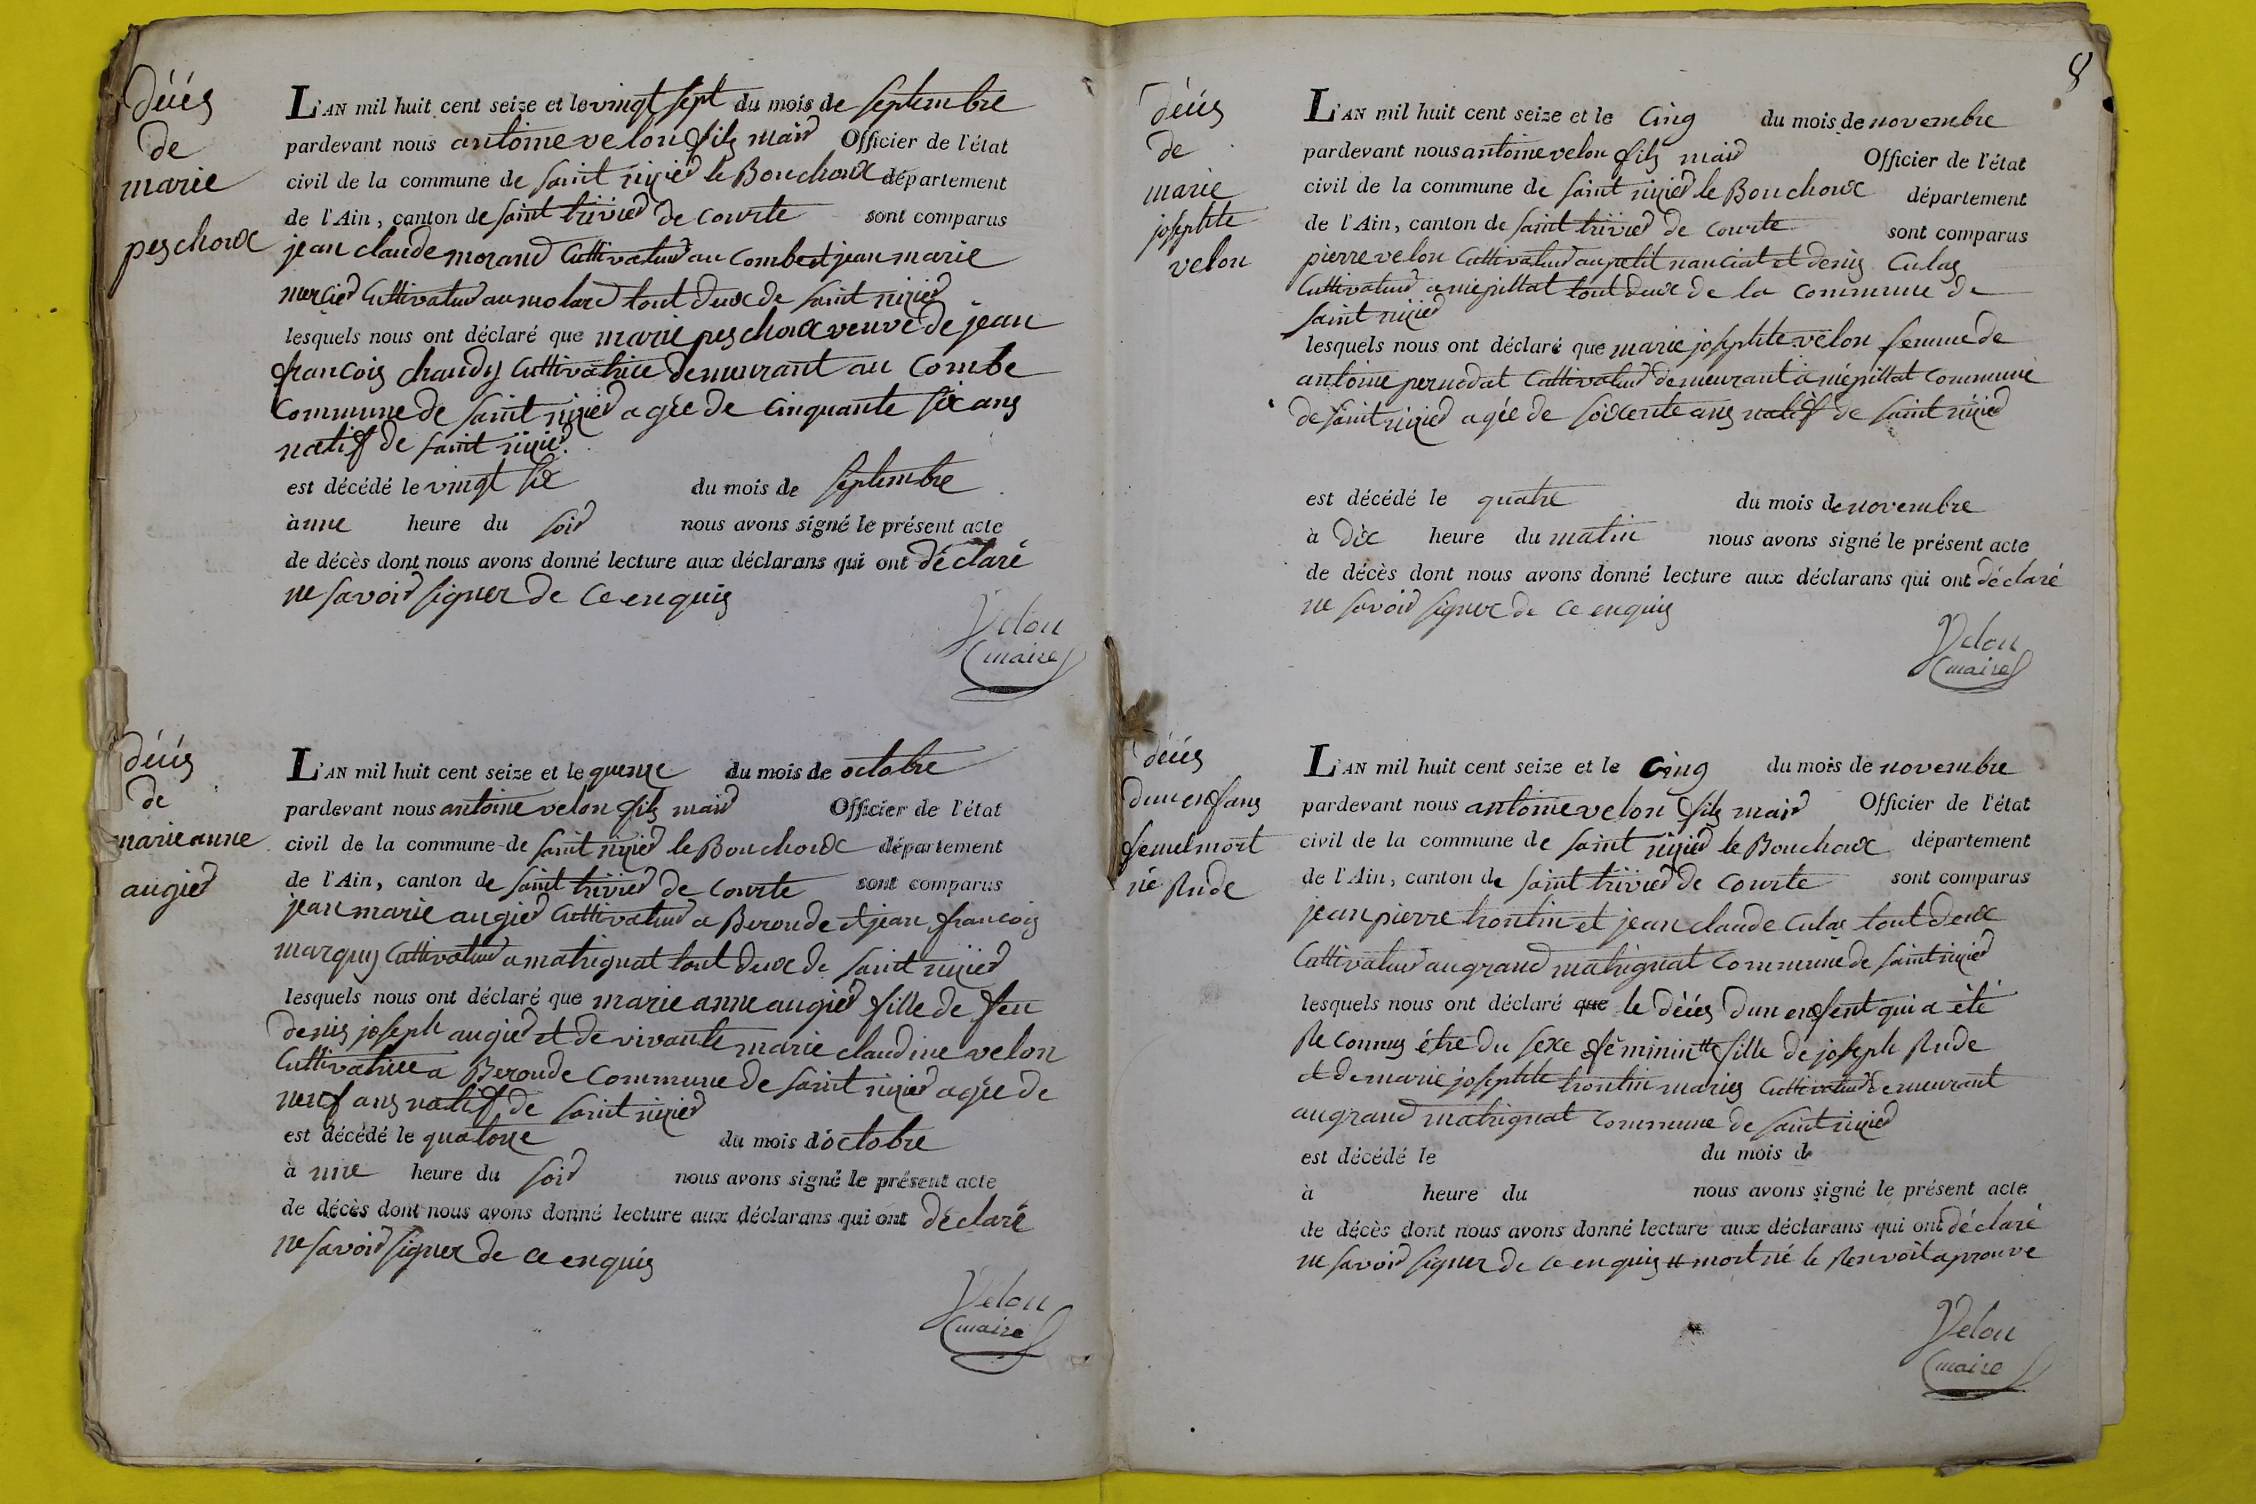 décés
de
marie
peschoux
L'AN mil huit cent seize et le vingt sept du mois de septembre
pardevant nous antoine velon fils maire Officier de l'état
civil de la commune de saint nizier le Bouchoux département
de l'Ain, canton de saint trivier de courte sont comparus
jean claude morand Cultivateur au combe et jean marie
mercier Cultivateur au molard tout deux de saint nizier
lesquels nous ont déclaré que marie peschoux veuve de jean
francois chaudy Cultivatrice demeurant au combe
commune de saint nizier agée de cinquante six ans
natif de saint nizier.
est décédé le vingt six du mois de septembre
à une heure du soir nous avons signé le présent acte
de décès dont nous avons donné lecture aux déclarans qui ont déclaré
ne savoir signer de ce enquis
Velon
maire
décés
de
marie anne
augier
L'AN mil huit cent seize et le quenze du mois de octobre
pardevant nous antoine velon fils maire Officier de l'état
civil de la commune de saint nizier le Bouchoux département
de l'Ain, canton de saint trivier de courte sont comparus
jean marie augier Cultivateur a Beronde et jean francois
marquis Cultivateur a matrignat tout deux de saint nizier
lesquels nous ont déclaré que marie anne augier fille de feu
denis joseph augier et de vivante marie claudine velon
Cultivatrice a Beronde commune de saint nizier agée de
neuf ans natif de saint nizier
est décédé le quatorze du mois d'octobre
à une heure du soir nous avons signé le présent acte
de décès dont nous avons donné lecture aux déclarans qui ont déclaré
ne savoir signer de ce enquis
Velon
maire
8
décés
de
marie
josephte
velon
L'AN mil huit cent seize et le cinq du mois de novembre
pardevant nous antoine velon fils maire Officier de l'état
civil de la commune de saint nizier le Bouchoux département
de l'Ain, canton de saint trivier de courte sont comparus
pierre velon Cultivateur au petit nanciat et denis Culas
Cultivateur a mépillat tout deux de la commune de
saint nizier
lesquels nous ont déclaré que marie josephte velon femme de
antoine pernodat Cultivateur demeurant a mépillat commune
de saint nizier agée de soixente ans natif de saint nizier
est décédé le quatre du mois de novembre
à dix heure du matin nous avons signé le présent acte
de décès dont nous avons donné lecture aux déclarans qui ont déclaré
ne savoir signer de ce enquis
Velon
maire
décés
dun enfans
femel mort
né Rude
L'AN mil huit cent seize et le cinq du mois de novembre
pardevant nous antoine velon fils maire Officier de l'état
civil de la commune de saint nizier le Bouchoux département
de l'Ain, canton de saint trivier de courte sont comparus
jean pierre trontin et jean claude Culas tout deux
Cultivateur au grand matrignat commune de saint nizier
lesquels nous ont déclaré que le décés dun enfent qui a été
Reconnus étre du sexe féminin # fille de joseph Rude
et de marie josephte trontin mariés Cultivateur demeurant
au grand matrignat commune de saint nizier
est décédé le du mois de
à heure du nous avons signé le présent acte
de décès dont nous avons donné lecture aux déclarans qui ont déclaré
ne savoir signer de ce enquis # mort né le Renvoit aprouve
Velon
maire